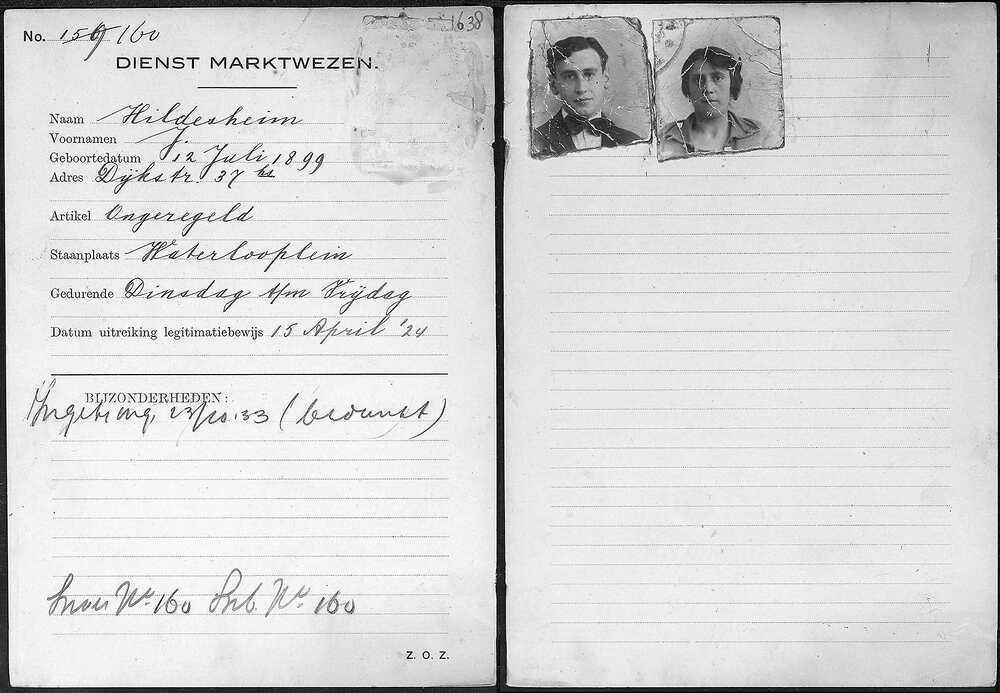 No. 159 160
1638
DIENST MARKTWEZEN.
Naam Hildesheim
Voornamen J.
Geboortedatum 12 Juli 1899
Adres Dijkstr. 37 hs
Artikel Ongeregeld
Staanplaats Waterlooplein
Gedurende Dinsdag t/m Vrijdag
Datum uitreiking legitimatiebewijs 15 April '24
BIJZONDERHEDEN:
Ingetr. 23/10.33 (bedankt)
No. 160 No. 160
Z. O. Z.